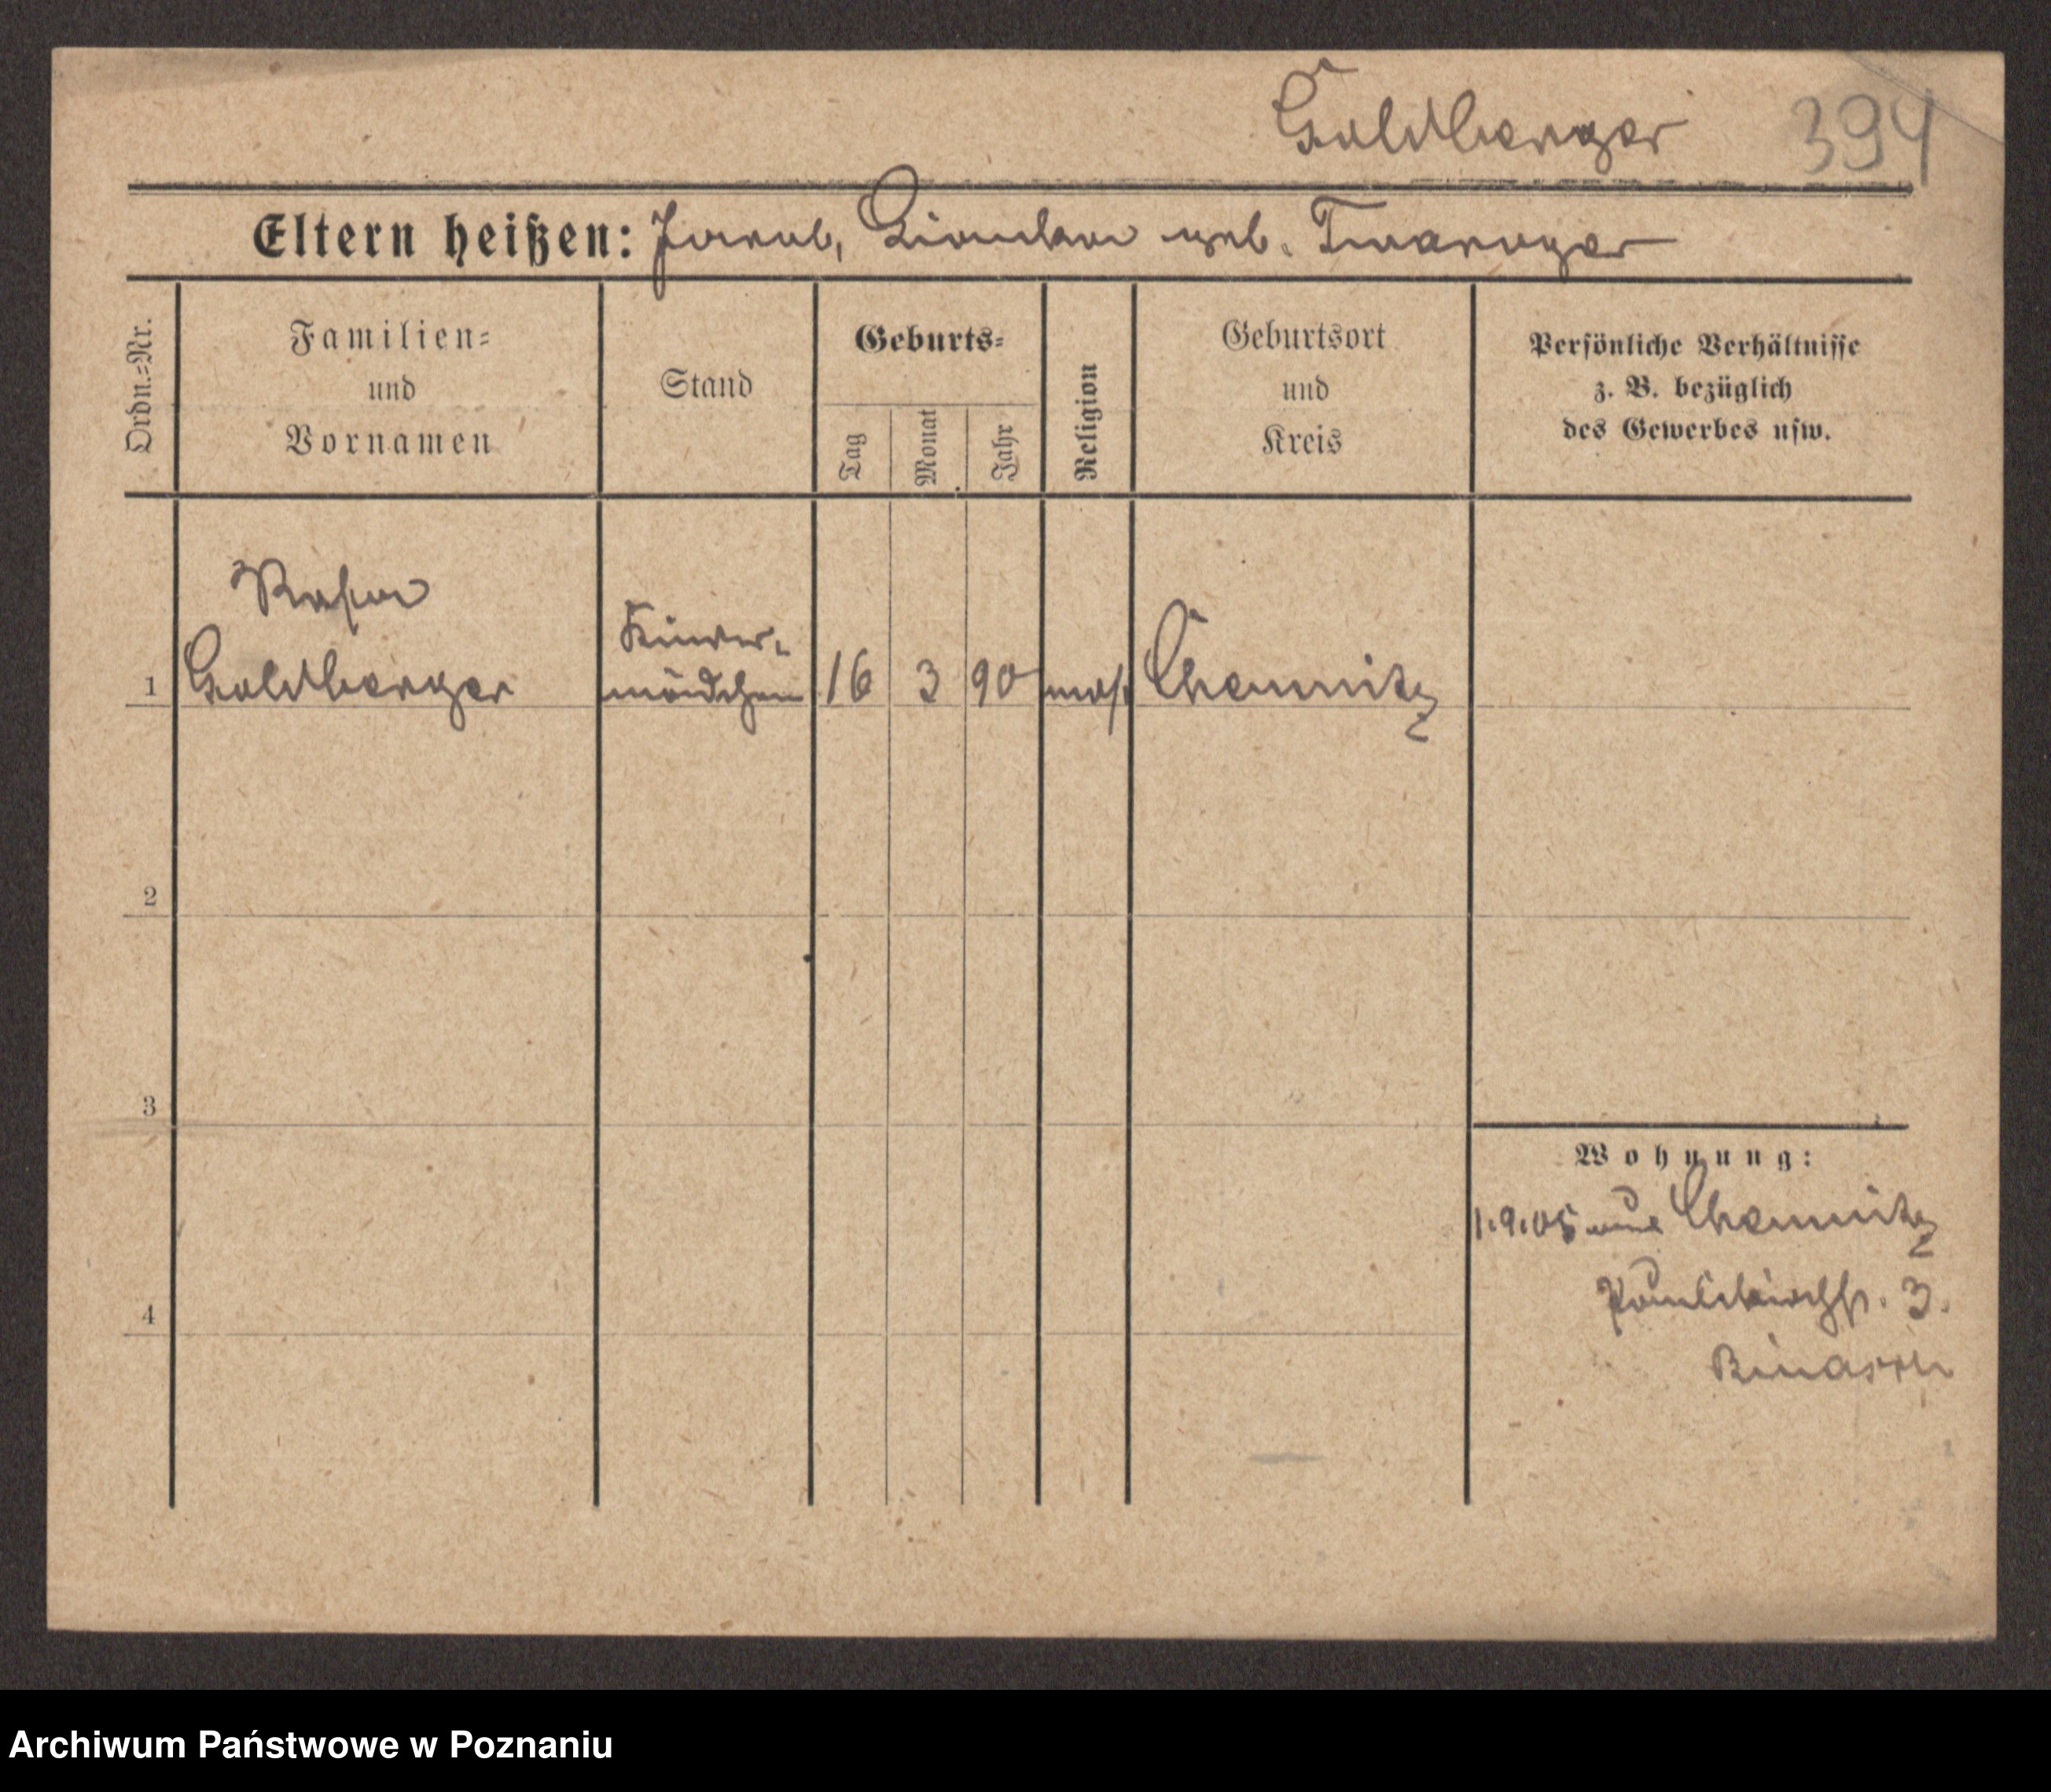 Goldberger 394
Eltern heißen: Jacob, Bianka geb. Twaroger
Ordn.=Nr.
Familien=
und
Vornamen
Stand
Geburts=
Tag
Monat
Jahr
Religion
Geburtsort
und
Kreis
Persönliche Verhältnisse
z. B. bezüglich
des Gewerbes usw.
Rosa
Kinder-
1 Goldberger mädchen 16 3 90 mos. Chemnitz
2
3
Wohnung:
1.9.05 Chemnitz
4 3.
Archiwum Państwowe w Poznaniu